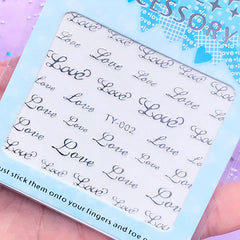 CESSORY
Love Love Love Love
Love Love Love Love Love
Love Love TY-002 Love Love
Love Love Love Love Love
Love Love Love Love Love
Love Love Love Love Love
just stick them onto your fingers and toe